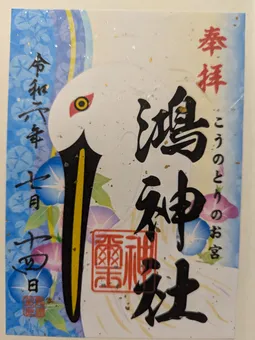 奉拝
こうのとりのお宮
鴻神社
神璽
令和六年
七月
十四日